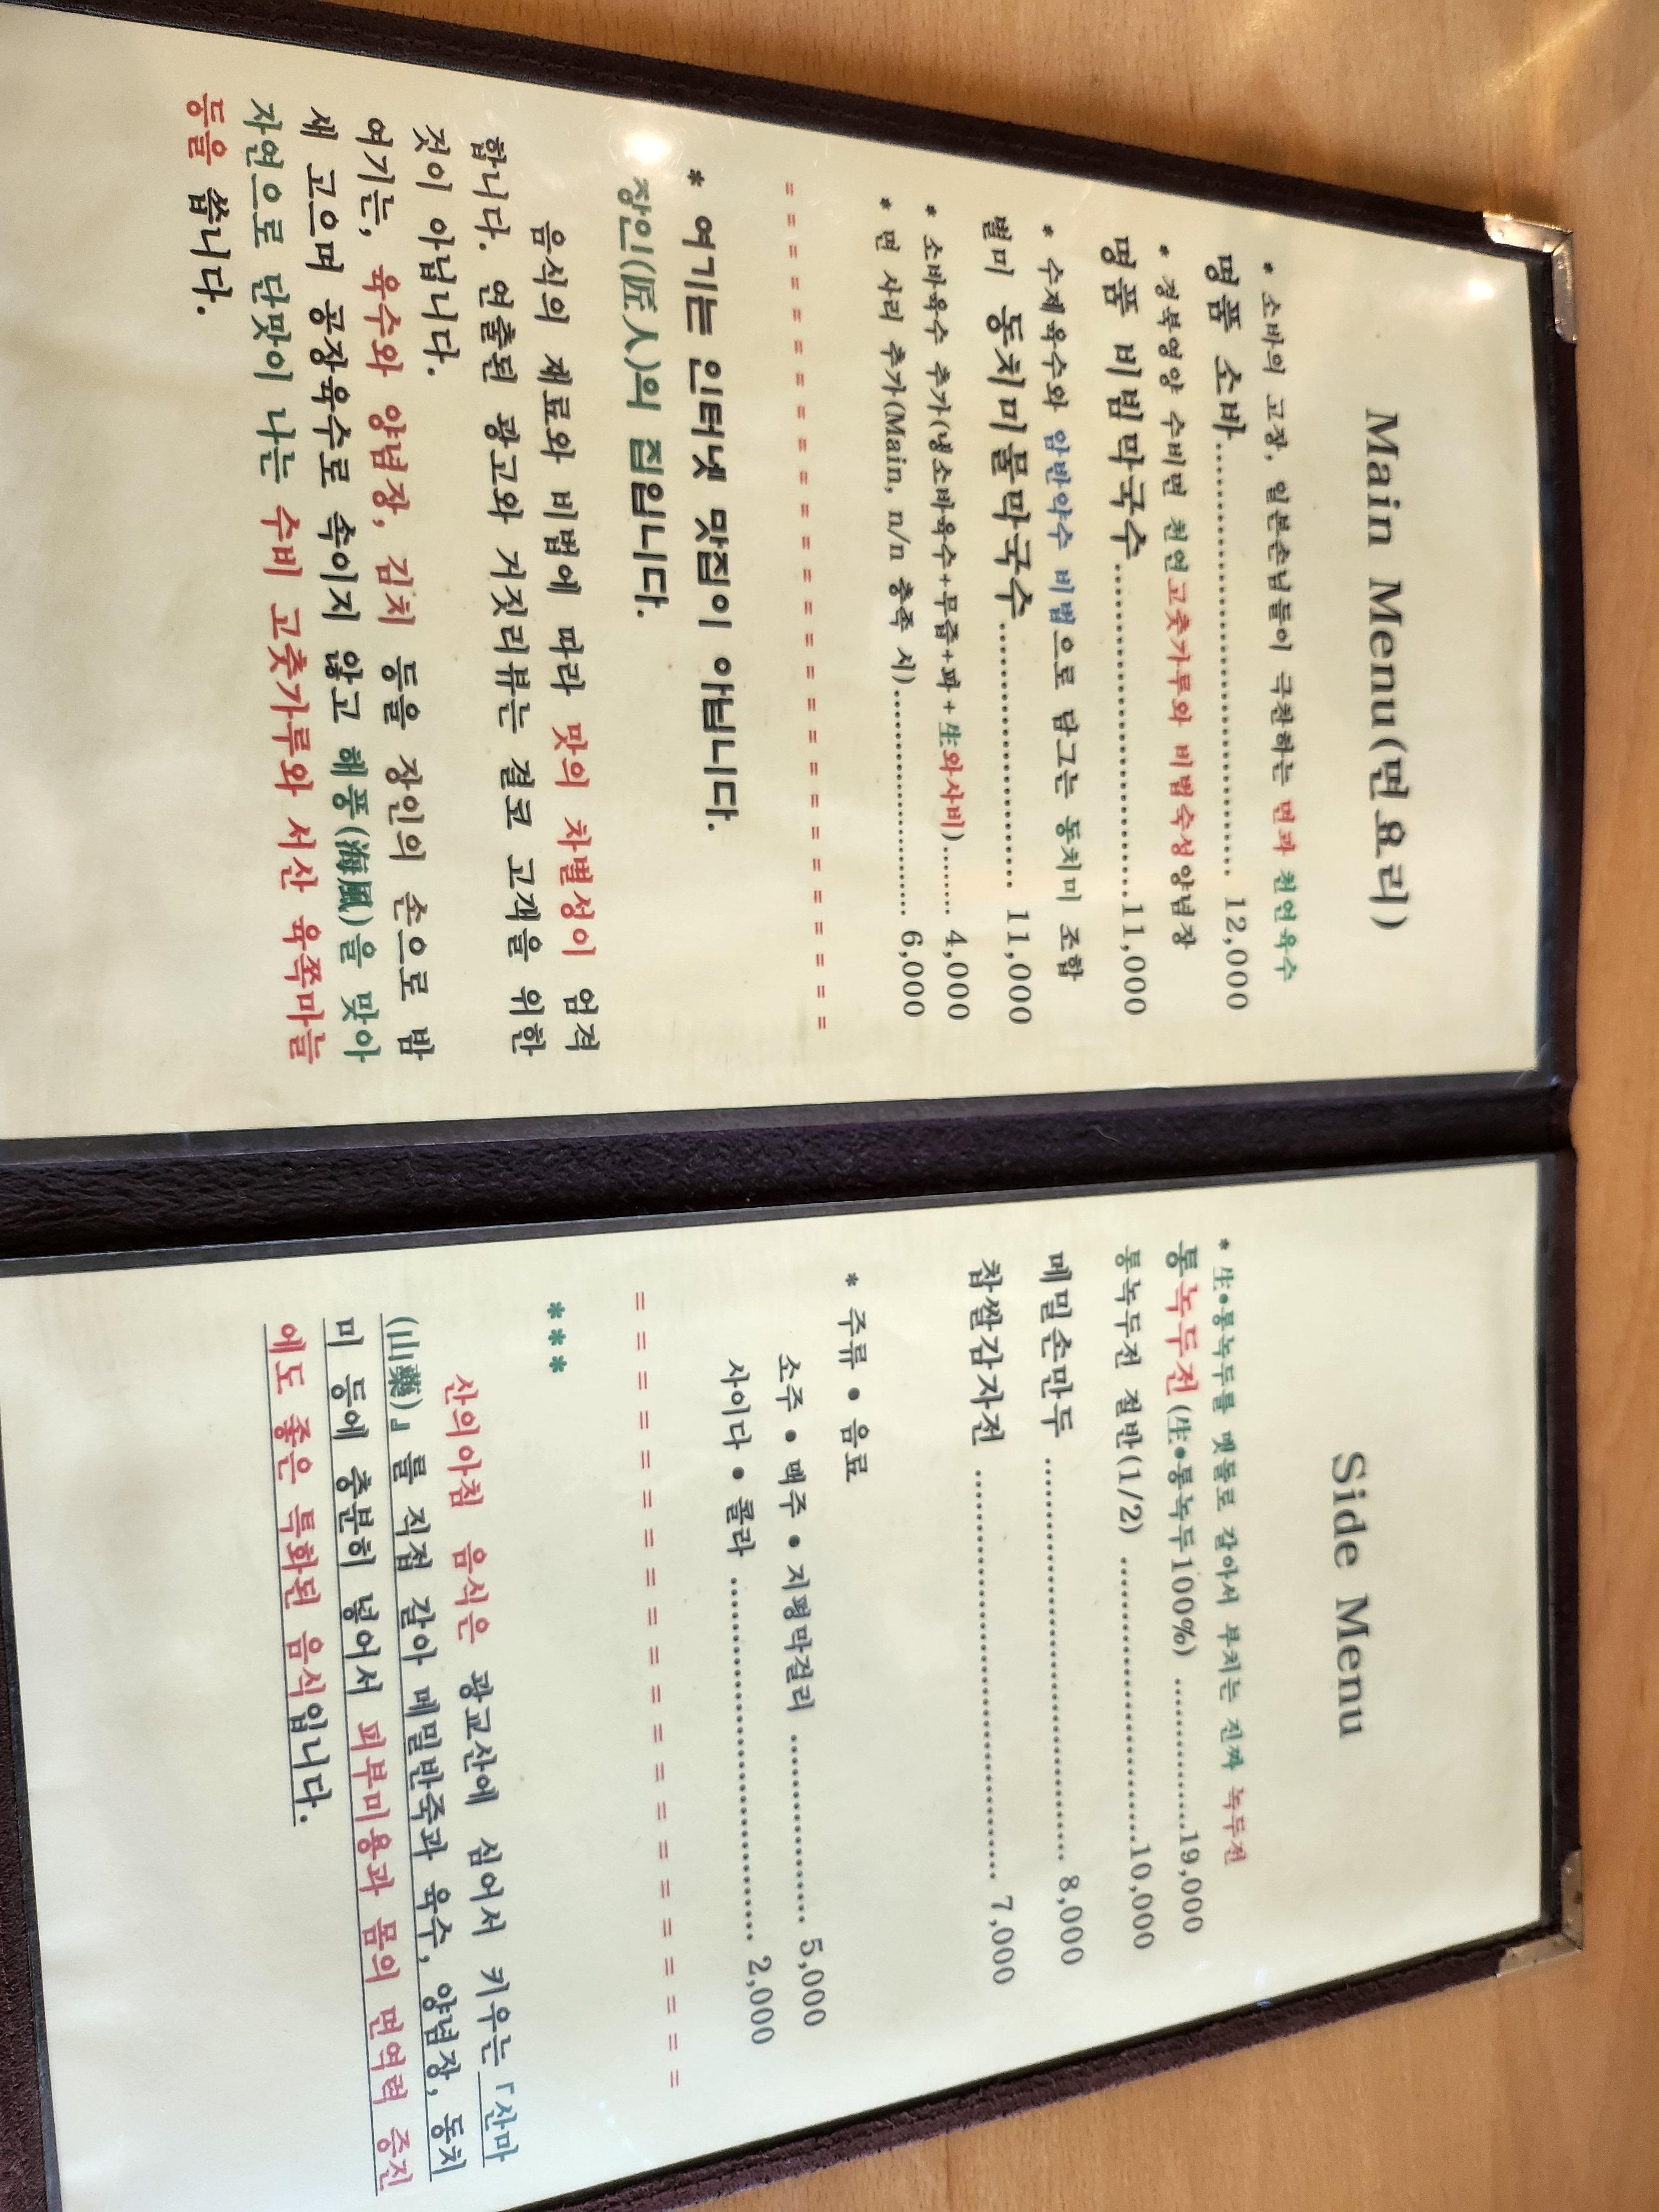 Main Menu(면요리)
* 소바의 고장, 일본손님들이 극찬하는 면과 천연육수
명품 소바........................................ 12,000
* 경북영양 수비면 천연고춧가루와 비법숙성양념장
명품 비빔막국수...............................11,000
* 수제육수와 암반약수 비법으로 담그는 동치미 조합
별미 동치미물막국수......................... 11,000
* 소바육수 추가(냉소바육수+무즙+파+生와사비)........ 4,000
* 면 사리 추가(Main, n/n 충족 시)......................... 6,000
= = = = = = = = = = = = = = = = = = = =
* 여기는 인터넷 맛집이 아닙니다.
장인(匠人)의 집입니다.
음식의 재료와 비법에 따라 맛의 차별성이 엄격
합니다. 연출된 광고와 거짓리뷰는 결코 고객을 위한
것이 아닙니다.
여기는, 육수와 양념장, 김치 등을 장인의 손으로 밤
새 고으며 공장육수로 속이지 않고 해풍(海風)을 맞아
자연으로 단맛이 나는 수비 고춧가루와 서산 육쪽마늘
등을 씁니다.
Side Menu
* 生•통녹두를 맷돌로 갈아서 부치는 진짜 녹두전
통녹두전(生•통녹두100%) ...............19,000
통녹두전 절반(1/2) ...........................10,000
메밀손만두 ...................................... 8,000
찹쌀감자전 ...................................... 7,000
* 주류 • 음료
소주 • 맥주 • 지평막걸리 .................. 5,000
사이다 • 콜라 ................................... 2,000
= = = = = = = = = = = = = = = = = = =
***
산의아침 음식은 광교산에 심어서 키우는 「산마
(山藥)」를 직접 갈아 메밀반죽과 육수, 양념장, 동치
미 등에 충분히 넣어서 피부미용과 몸의 면역력 증진
에도 좋은 특화된 음식입니다.